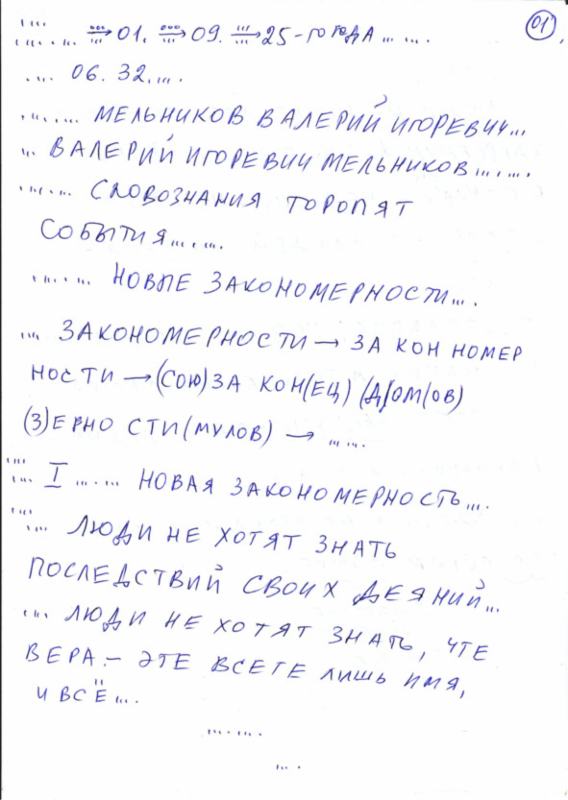 01
.... ...... ⇒ 01. ⇒ 09. ⇒ 25-ГОГОДА... ...
.... 06. 32. ....
...... МЕЛЬНИКОВ ВАЛЕРИЙ ИГОРЕВИЧ...
... ВАЛЕРИЙ ИГОРЕВИЧ МЕЛЬНИКОВ... ....
...... СЛОВОЗНАНИЯ ТОРОПЯТ
СОБЫТИЯ... ...
...... НОВЫЕ ЗАКОНОМЕРНОСТИ... .
... ЗАКОНОМЕРНОСТИ → ЗА КОН НОМЕР
НОСТИ → (СОЮ)ЗА КОН(ЕЦ) (Д)ОМ(ОВ)
(З)ЕРНО СТИ(МУЛОВ) → ... ...
.... ... I ... ... НОВАЯ ЗАКОНОМЕРНОСТЬ... .
.... ... ЛЮДИ НЕ ХОТЯТ ЗНАТЬ
ПОСЛЕДСТВИЙ СВОИХ ДЕЯНИЙ...
... ЛЮДИ НЕ ХОТЯТ ЗНАТЬ, ЧТЕ
ВЕРА – ЭТЕ ВСЕГЕ ЛИШЬ ИМЯ,
И ВСЁ... .
... . ...
... .